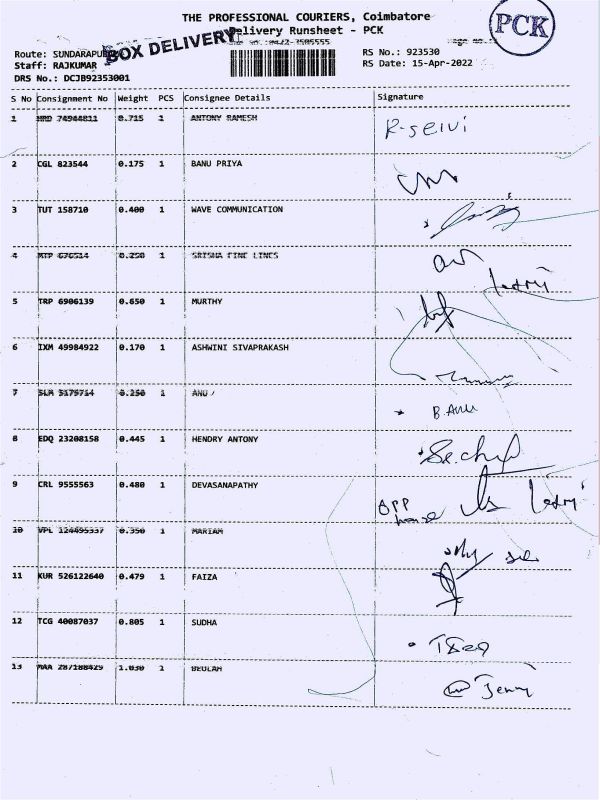 THE PROFESSIONAL COURIERS, Coimbatore
Delivery Runsheet - PCK
PCK
BOX DELIVERY
Route:
Staff: RAJKUMAR
DRS No.: DCJB92353001
RS No.: 923530
RS Date: 15-Apr-2022
S No Consignment No Weight PCS Consignee Details Signature
1 74944811 0.715 1 ANTONY RAMESH R-selvi
2 CGL 823544 0.175 1 BANU PRIYA
3 TUT 158710 0.400 1 WAVE COMMUNICATION
4 MTP 676514 0.250 1 SRISHA FINE LINES
5 TRP 6906139 0.650 1 MURTHY
6 IXM 49984922 0.170 1 ASHWINI SIVAPRAKASH
7 SLM 5179714 0.250 1 ANU B. Anu
8 EDQ 23208158 0.445 1 HENDRY ANTONY
9 CRL 9555563 0.480 1 DEVASANAPATHY opp house
10 VPL 124495337 0.350 1 MARIAM
11 KUR 526122640 0.479 1 FAIZA
12 TCG 40087037 0.805 1 SUDHA
13 MAA 287188429 1.030 1 BEULAH Jenny